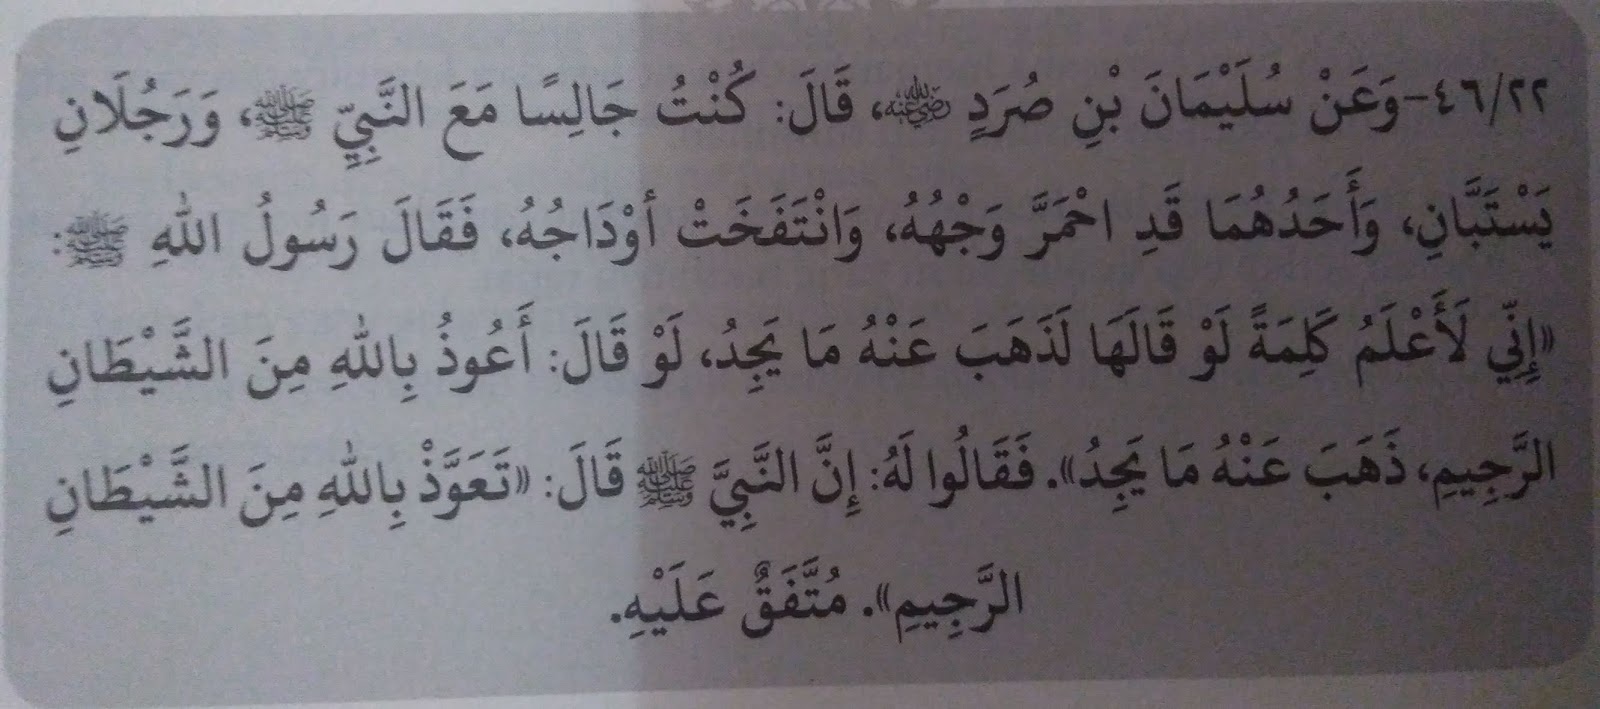 ٤٦/٢٢-وَعَنْ سُلَيْمَانَ بْنِ صُرَدٍ رضي الله عنه، قَالَ: كُنْتُ جَالِسًا مَعَ النَّبِيِّ ﷺ، وَرَجُلَانِ
يَسْتَبَّانِ، وَأَحَدُهُمَا قَدِ احْمَرَّ وَجْهُهُ، وَانْتَفَخَتْ أوْدَاجُهُ، فَقَالَ رَسُولُ اللهِ ﷺ:
«إِنِّي لَأَعْلَمُ كَلِمَةً لَوْ قَالَهَا لَذَهَبَ عَنْهُ مَا يَجِدُ، لَوْ قَالَ: أَعُوذُ بِاللهِ مِنَ الشَّيْطَانِ
الرَّجِيمِ، ذَهَبَ عَنْهُ مَا يَجِدُ». فَقَالُوا لَهُ: إِنَّ النَّبِيَّ ﷺ قَالَ: «تَعَوَّذْ بِاللهِ مِنَ الشَّيْطَانِ
الرَّجِيمِ». مُتَّفَقٌ عَلَيْهِ.